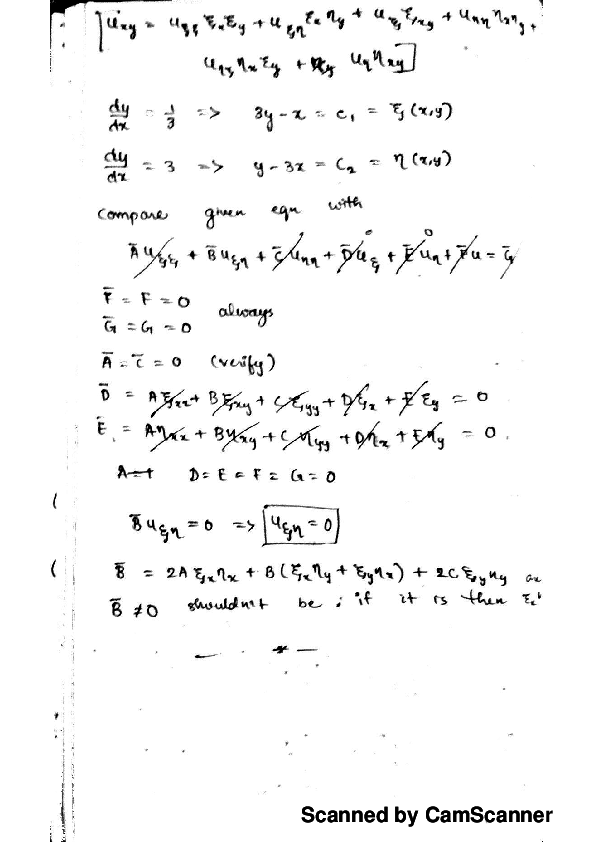 u_xy = u_ξξ ξ_x ξ_y + u_ξη ξ_x η_y + u_ξ ξ_xy + u_ηη η_x η_y +
u_ηξ η_x ξ_y + u_η η_xy]
dy/dx = 1/3 => 3y - x = c₁ = ξ(x,y)
dy/dx = 3 => y - 3x = C₂ = η(x,y)
compare given eqn with
Ā u_ξξ + B̄ u_ξη + C̄ u_ηη + D̄ u_ξ + Ē u_η + F̄ u = Ḡ
F̄ = F = 0
always
Ḡ = G = 0
Ā = C̄ = 0 (verify)
D̄ = A ξ_xx + B ξ_xy + C ξ_yy + D ξ_x + E ξ_y = 0
Ē = A η_xx + B η_xy + C η_yy + D η_x + E η_y = 0.
D = E = F = G = 0
B̄ u_ξη = 0 => u_ξη = 0
B̄ = 2A ξ_x η_x + B(ξ_x η_y + ξ_y η_x) + 2C ξ_y η_y
B̄ ≠ 0 shouldn't be ; if it is then
Scanned by CamScanner